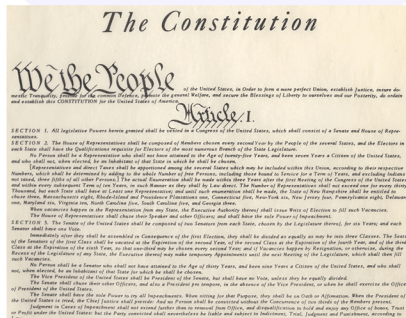 The Constitution
We the People
of the United States, in Order to form a more perfect Union, establish Justice, insure do-
mestic Tranquility, provide for the common Defence, promote the general Welfare, and secure the Blessings of Liberty to ourselves and our Posterity, do ordain
and establish this CONSTITUTION for the United States of America
Article I.
SECTION 1. All legislative Powers herein granted shall be vested in a Congress of the United States, which shall consist of a Senate and House of Repre-
sentatives.
SECTION 2. The House of Representatives shall be composed of Members chosen every second Year by the People of the several States, and the Electors in
each State shall have the Qualifications requisite for Electors of the most numerous Branch of the State Legislature.
No Person shall be a Representative who shall not have attained to the Age of twenty-five Years, and been seven Years a Citizen of the United States,
and who shall not, when elected, be an Inhabitant of that State in which he shall be chosen.
[Representatives and direct Taxes shall be apportioned among the several States which may be included within this Union, according to their respective
Numbers, which shall be determined by adding to the whole Number of free Persons, including those bound to Service for a Term of Years, and excluding Indians
not taxed, three fifths of all other Persons.] The actual Enumeration shall be made within three Years after the first Meeting of the Congress of the United States
and within every subsequent Term of ten Years, in such Manner as they shall by Law direct. The Number of Representatives shall not exceed one for every thirty
Thousand, but each State shall have at Least one Representative; and until such enumeration shall be made, the State of New Hampshire shall be entitled to
chuse three, Massachusetts eight, Rhode-Island and Providence Plantations one, Connecticut five, New-York six, New Jersey four, Pennsylvania eight, Delaware
one, Maryland six, Virginia ten, North Carolina five, South Carolina five, and Georgia three.
When vacancies happen in the Representation from any State, the Executive Authority thereof shall issue Writs of Election to fill such Vacancies.
The House of Representatives shall chuse their Speaker and other Officers; and shall have the sole Power of Impeachment.
SECTION 3. The Senate of the United States shall be composed of two Senators from each State, chosen by the Legislature thereof, for six Years; and each
Senator shall have one Vote.
Immediately after they shall be assembled in Consequence of the first Election, they shall be divided as equally as may be into three Classes. The Seats
of the Senators of the first Class shall be vacated at the Expiration of the second Year, of the second Class at the Expiration of the fourth Year, and of the third
Class at the Expiration of the sixth Year, so that one-third may be chosen every second Year; and if Vacancies happen by Resignation, or otherwise, during the
Recess of the Legislature of any State, the Executive thereof may make temporary Appointments until the next Meeting of the Legislature, which shall then fill
such Vacancies.
No Person shall be a Senator who shall not have attained to the Age of thirty Years, and been nine Years a Citizen of the United States, and who shall
not, when elected, be an Inhabitant of that State for which he shall be chosen.
The Vice President of the United States shall be President of the Senate, but shall have no Vote, unless they be equally divided.
The Senate shall chuse their other Officers, and also a President pro tempore, in the absence of the Vice President, or when he shall exercise the Office
of President of the United States.
The Senate shall have the sole Power to try all Impeachments. When sitting for that Purpose, they shall be on Oath or Affirmation. When the President of
the United States is tried, the Chief Justice shall preside: And no Person shall be convicted without the Concurrence of two thirds of the Members present.
Judgment in Cases of Impeachment shall not extend further than to removal from Office, and disqualification to hold and enjoy any Office of honor, Trust
or Profit under the United States: but the Party convicted shall nevertheless be liable and subject to Indictment, Trial, Judgment and Punishment, according to